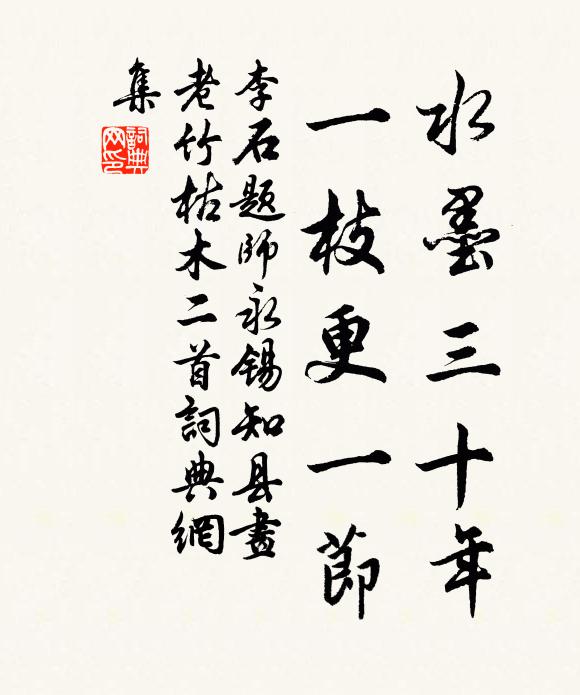 水墨三十年
一枝更一節
李石題師永錫知县畫
老竹枯木二首詞典網
集
詞典
网印